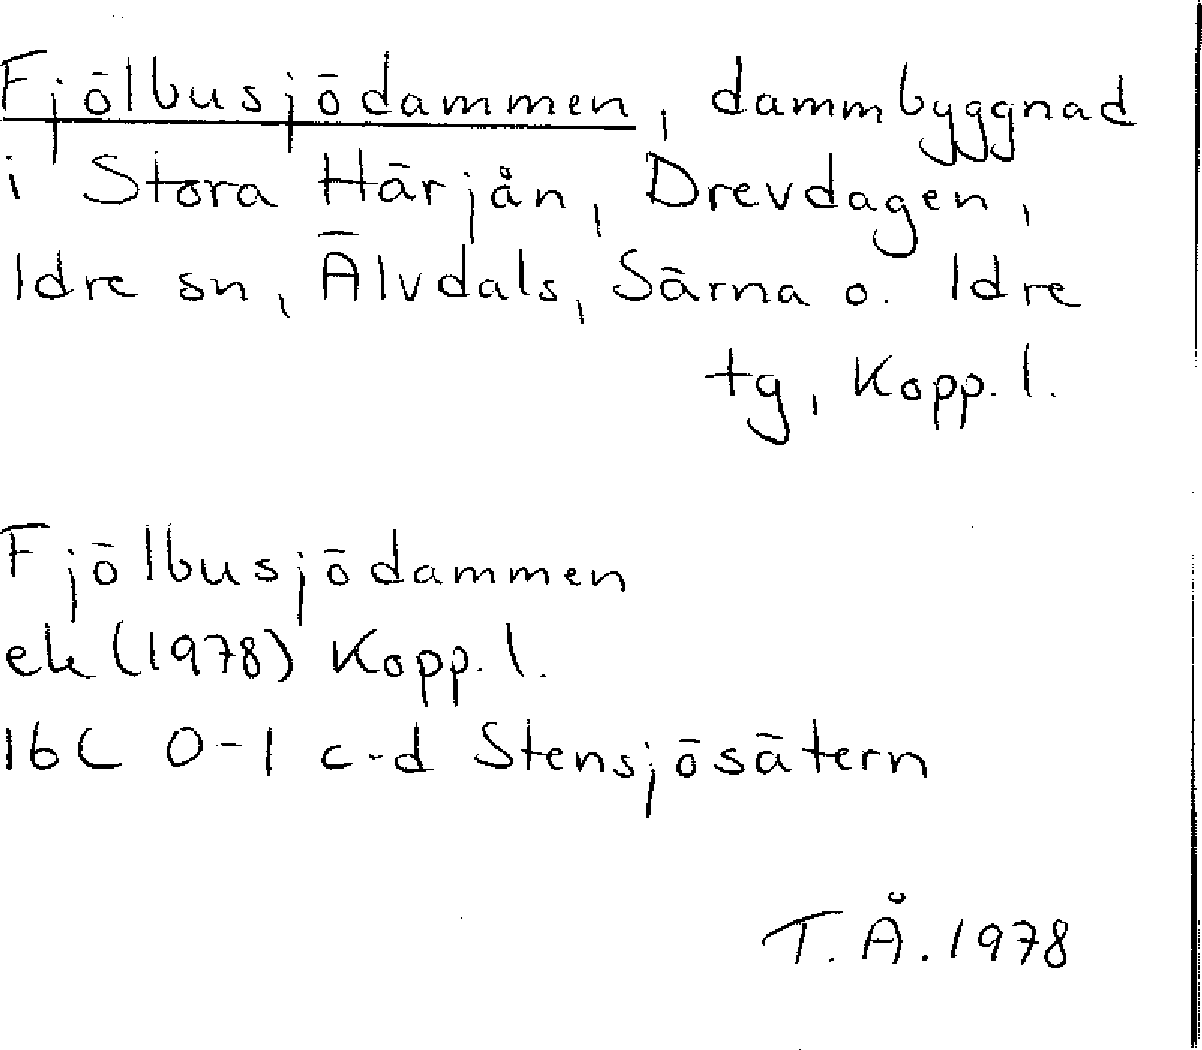 Fjölbusjödammen, dammbyggnad
i Stora Härjån, Drevdagen,
Idre sn, Älvdals, Särna o. Idre
tg, Kopp. l.
Fjölbusjödammen
ek (1978) Kopp. l.
16C 0-1 c-d Stensjösätern
T. Å. 1978